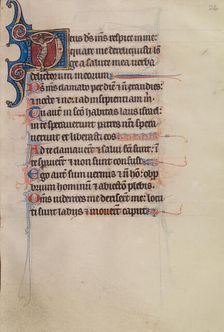 26
Deus ds ms respice in me:
quare me dereliquisti lō
ge a salute mea verba
delictorum meorum.
Ds ms clamabo per diē ⁊ nō exaudies:
⁊ nocte ⁊ non ad insipientiam m̄.
Tu autē in scō habitas laus israel:
in te speraverunt patres nostri spera
verunt et liberasti eos
Ad te clamaverūt ⁊ salui facti sunt: ī
te speraverūt ⁊ non sunt confusi
Ego autē sum vermis ⁊ nō hō: op
brium hominū ⁊ abiectio plebis.
Oms videntes me deriserūt me: locu
ti sunt labiis ⁊ moverūt caput